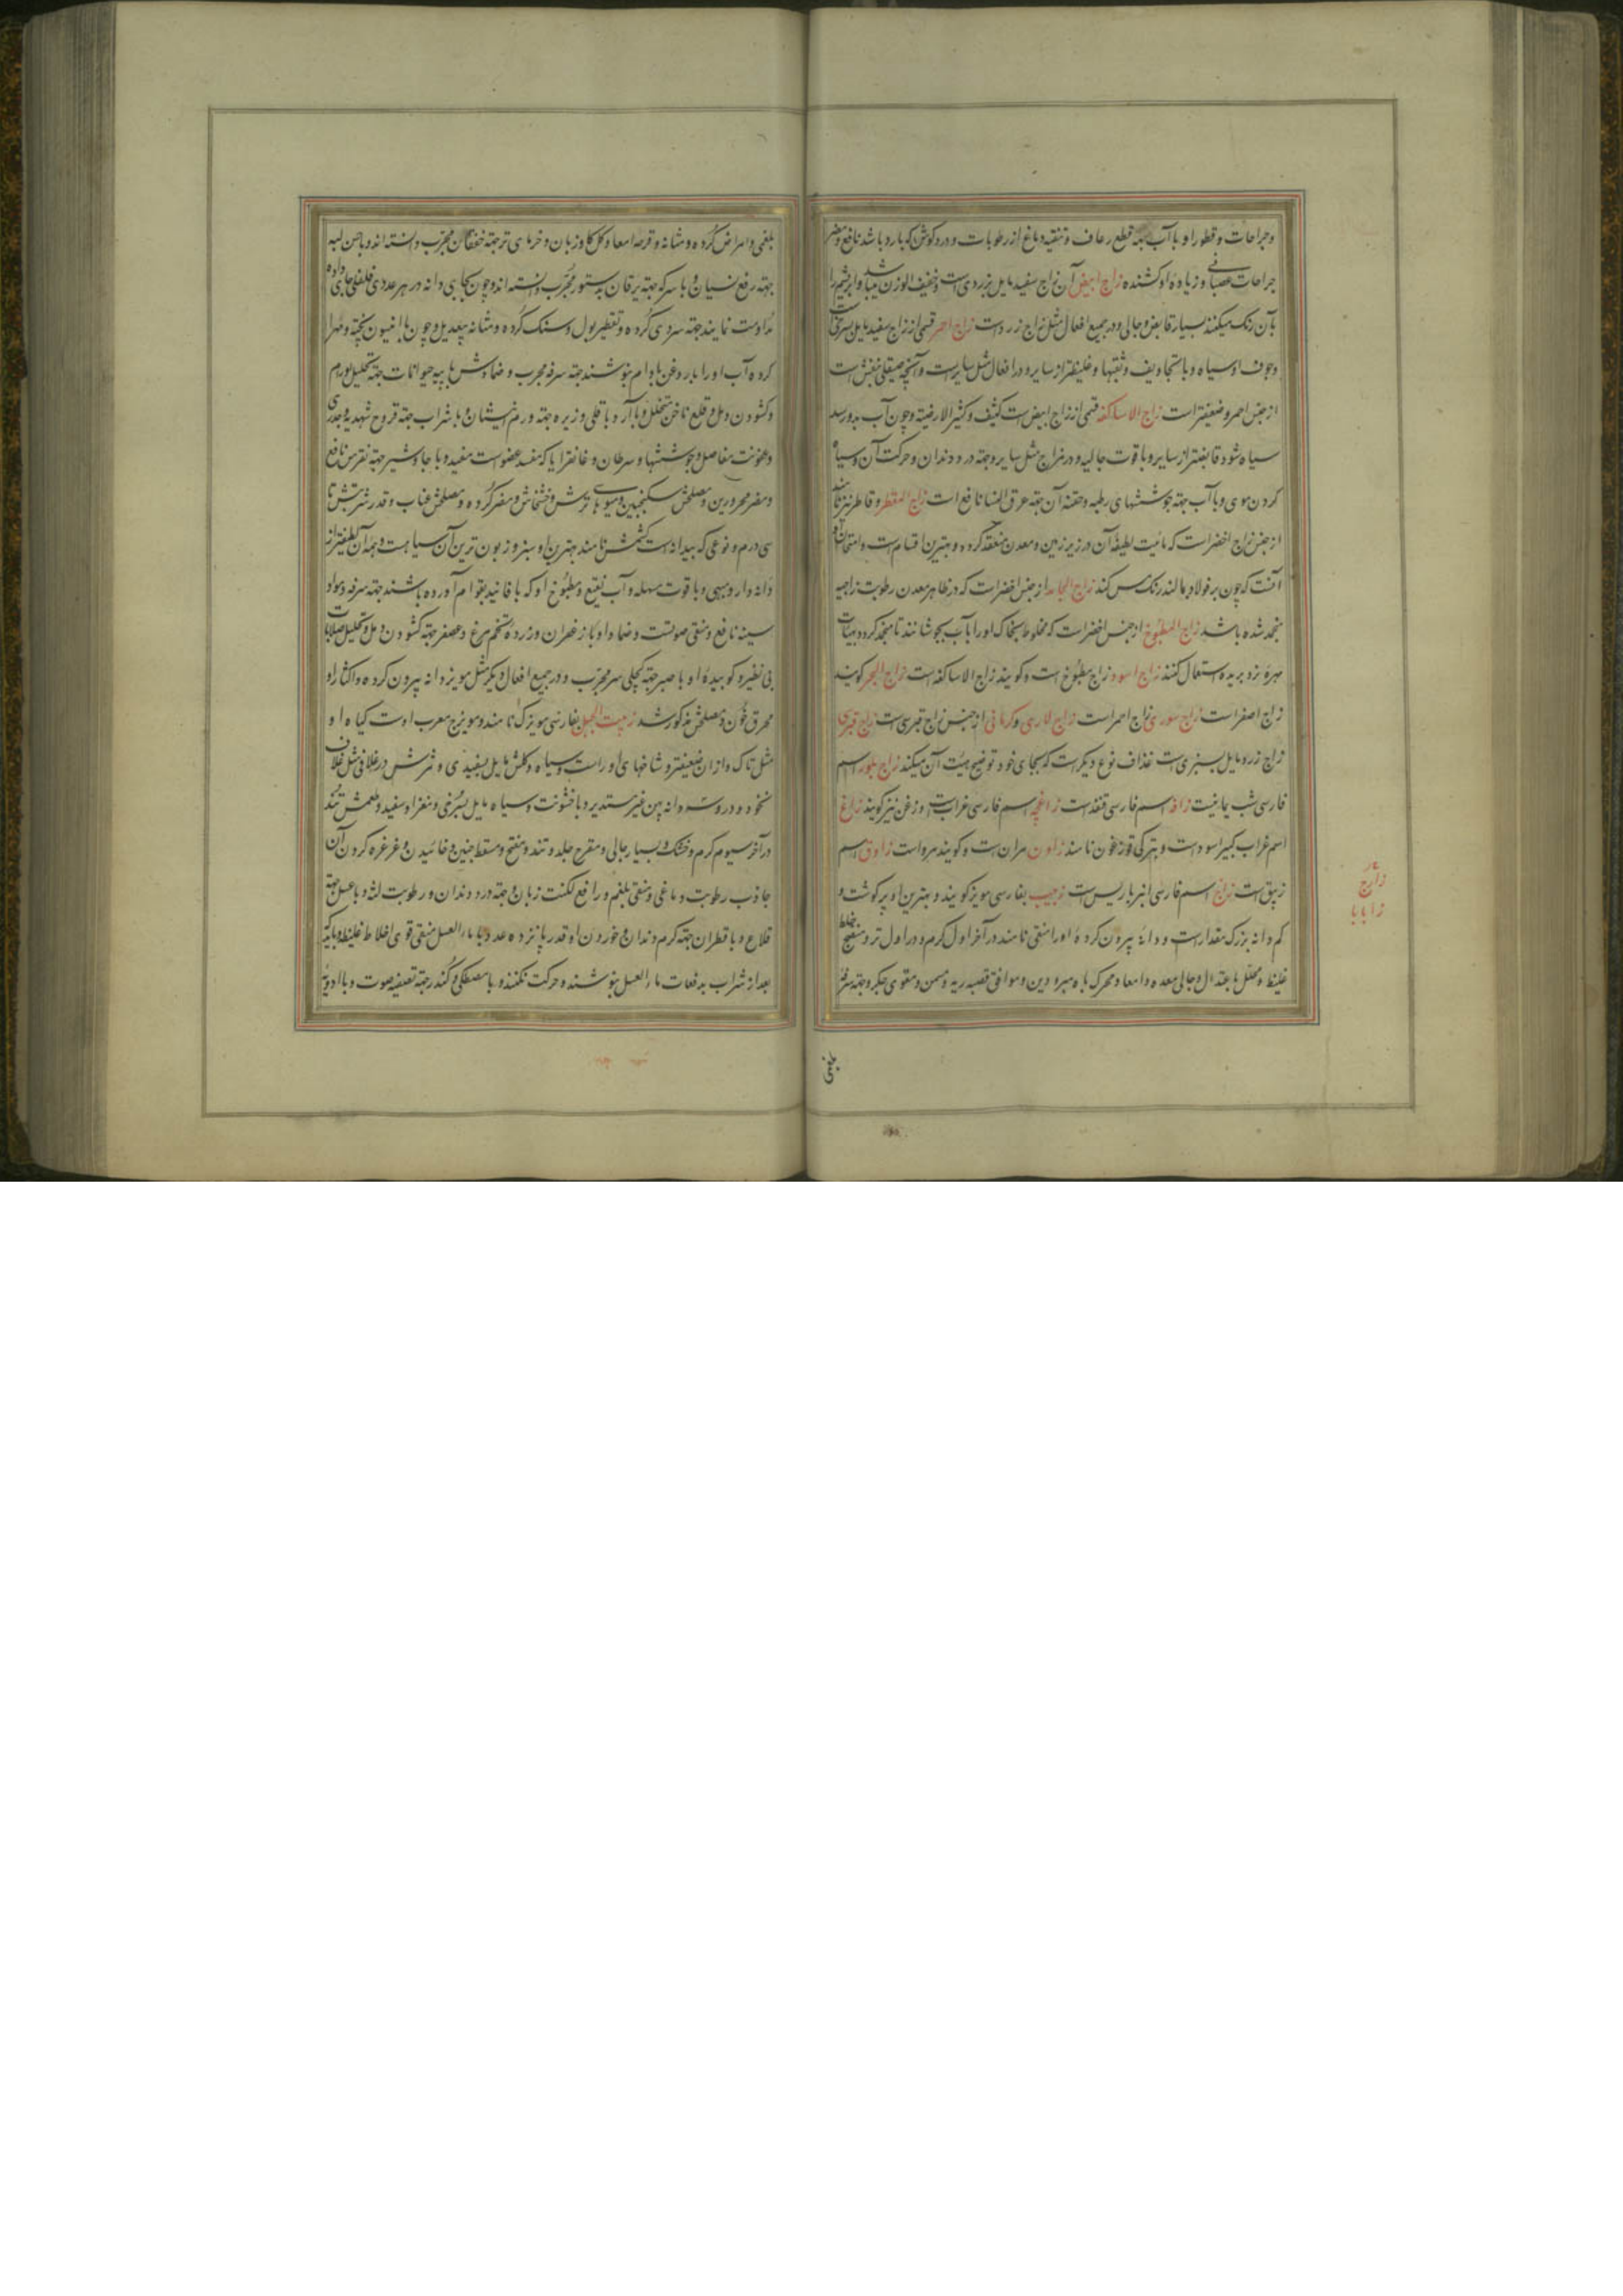 وجراحات و قطور او با آب جهة قطع رعاف و تنقیه دماغ از رطوبات و درد کوش که بارد باشد نافع و مضر
جراحات عصبانی و زیاده او کشنده زاج ابیض آن زاج سفید مایل بزردی است و خفیف الوزن میباشد و ابریشم را
بآن رنک میکنند بسیار قابض و جالی و در جمیع افعال مثل زاج زرد است زاج احمر قسمی از زاج سفید مایل بسرخی است
و جوف او سیاه و با تجاویف و ثقبها و غلیظتر از سایر و در افعال مثل سایر است و آنچه صیقلی بنفش است
از جنس احمر و ضعیفتر است زاج الاساکفه قسمی از زاج ابیض است کثیف و کثیر الارضیه و چون آب بدو رسد
سیاه شود قابضتر از سایر و با قوت جالیه و در مزاج مثل سایر و جهة درد دندان و حرکت آن و سیاه
کردن موی و با آب جهة جوششهای رطبه و حقنه آن جهة عرق النسا نافع است زاج المقطر و قاطر نیز نامند
از جنس زاج اخضر است که مائیت لطیفه آن در زیر زمین و معدن منعقد کردد و بهترین اقسام است و امتحان او
آنست که چون بر فولاد بمالند رنک مس کند زاج الجامد از جنس اخضر است که در ظاهر معدن رطوبت زاجیه
منجمد شده باشد زاج المطبوخ از جنس اخضر است که مخلوط بخاک او را با آب بجوشانند تا منجمد کردد بهیات
مهره نرد بریده استعمال کنند زاج اسود زاج مطبوخ است و کویند زاج الاساکفه است زاج البحر کویند
زاج اصفر است زاج سوری زاج احمر است زاج لاری و کرمانی از جنس زاج قبرسی است زاج قبرسی
زاج زرد مایل بسبزی است غذاف نوع دیکر است که بجای خود توضیح هیئت آن میکند زاج بلور اسم
فارسی شب یمانیست زافه اسم فارسی قنفذ است زاغچه اسم فارسی غراب است و زغن نیز کویند زاغ
اسم غراب کبیر اسود است و بترکی قوزغون نامند زاون مران است و کویند مرو است زاوق اسم
زیبق است زراج اسم فارسی انبرباریس است زبیب بفارسی مویز کویند و بهترین او پر کوشت و
کم دانه بزرک مقدار است و دانه بیرون کرده او را منقی نامند در آخر اول کرم و در اول تر و منضج خلط
غلیظ و محلل باعتدال و جالی معده و امعا و محرک باه مبرودین و موافق قصبه ریه و مسمن و مقوی جکر و جهة سرفه
بلغمی
زارج
زابابا
بلغمی و امراض کرده و مثانه و قرحه امعا و کل کاوزبان و خرمای تر جهة خفقان مجرب دانسته اند و با حسن لبه
جهة رفع نسیان و با سرکه جهة یرقان بدستور مجرب دانسته اند و چون بجای دانه در هر عددی فلفلی جای داده
مداومت نمایند جهة سردی کرده و تقطیر بول و سنک کرده و مثانه بیعدیل و چون با افیون پخته و مهرا
کرده آب او را با روغن بادام بنوشند جهة سرفه مجرب و ضمادش با پیه حیوانات جهة تحلیل اورام
و کشودن دمل و قلع ناخن متخلخل و با آرد باقلی و زیره جهة ورم انثیین و با شراب جهة قروح شهدیه و جدری
و عفونت مفاصل و جوششها و سرطان و غانقرایا که مفسد عضو است مفید و با جاوشیر جهة نقرس نافع
و مضر محرورین و مصلحش سکنجبین و میوهای ترش و خشخاش و مضر کرده و مصلحش عناب و قدر شربتش تا
سی درم و نوعی که بیدانه است کشمش نامند بهترین او سبز و زبون ترین آن سیاه است و همه آن لطیفتر از
دانه دار و بهی و با قوت مسهله و آب نقیع و مطبوخ او که با فانید بقوام آورده باشند جهة سرفه و مواد
سینه نافع و منقی صوتست و ضماد او با زعفران و زرده تخم مرغ و عصفر جهة کشودن دمل و تحلیل صلابات
بی نظیر و کوبیده او با صبر جهة کچلی سر مجرب و در جمیع افعال دیکر مثل مویز دانه بیرون کرده و اکثار او
محرق خون و مصلحش مذکور شد زبیب الجبل بفارسی مویزک نامند و مویزج معرب اوست کیاه او
مثل تاک و از ان ضعیفتر و شاخهای او راست و سیاه و کلش مایل بسفیدی و ثمرش در غلافی مثل غلاف
نخود و در او سه دانه پهن غیر مستدیر و با خشونت و سیاه مایل بسرخی و مغز او سفید و طعمش تند
در آخر سیوم کرم و خشک و بسیار جالی و مقرح جلد و تند و مفتح و مسقط جنین و خائیدن و غرغره کردن آن
جاذب رطوبت دماغی و منقی بلغم و رافع لکنت زبان و جهة درد دندان و رطوبت لثه و با عسل جهة
قلاع و با قطران جهة کرم دندان و خوردن او قدر پانزده عدد با ماء العسل منقی قوی اخلاط غلیظ و باید که
بعد از شراب بدفعات ماء العسل بنوشند و حرکت نکنند و با مصطکی و کندر جهة تصفیه صوت و با ادویه